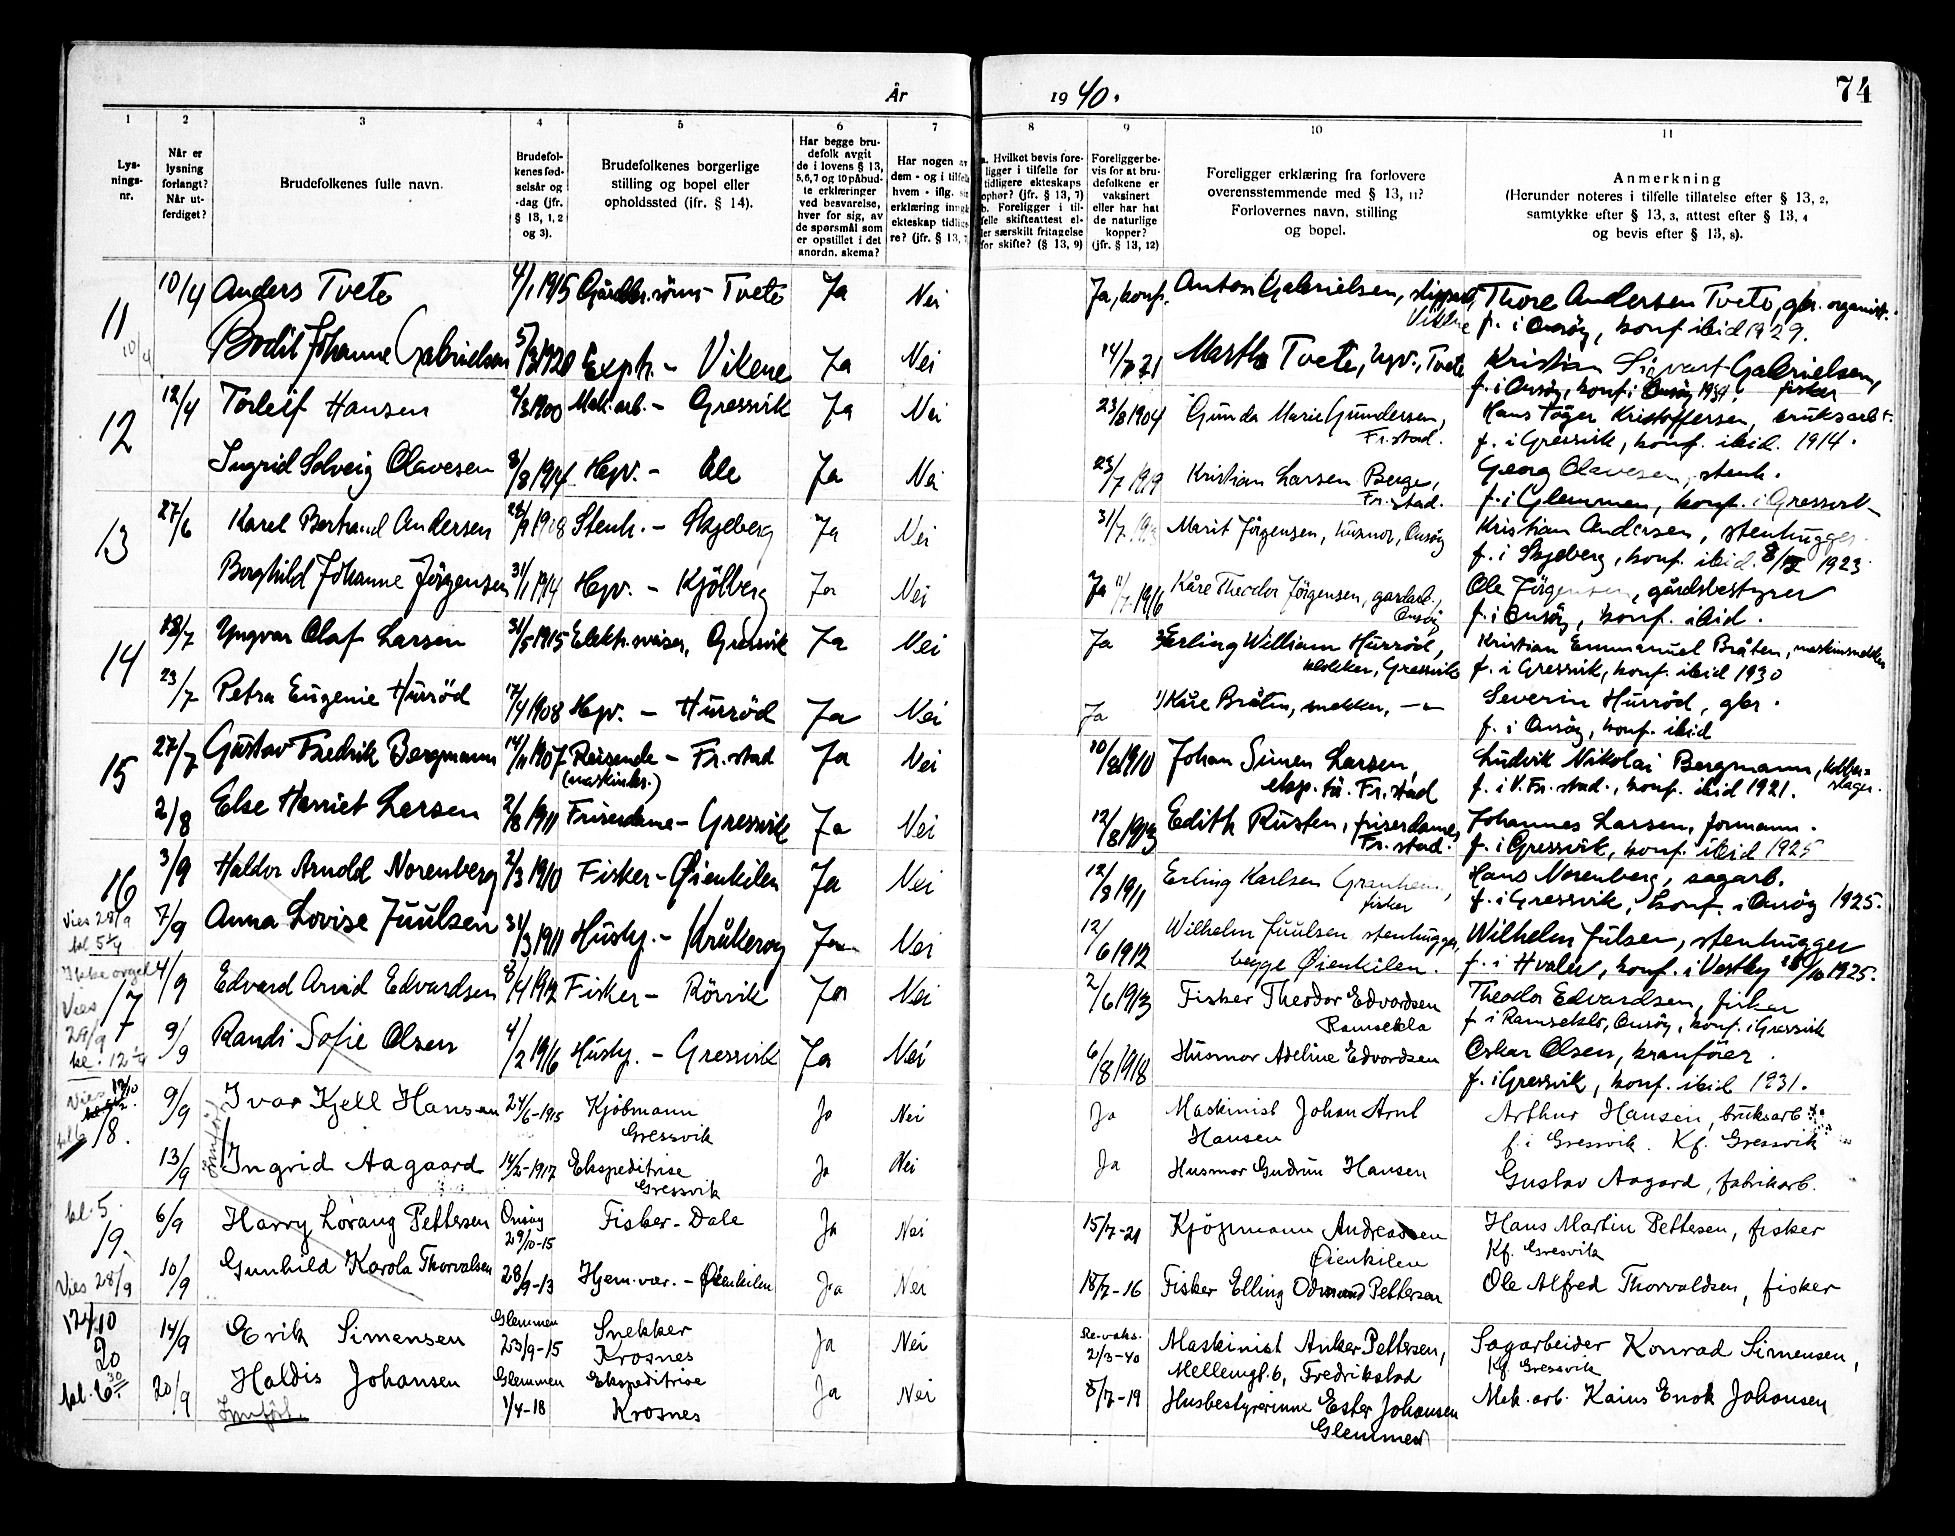 År 1940. 74
1 2 3 4 5 6 7 8 9 10 11
Lys-
nings-
nr.
Når er
lysning
forlangt?
Når ut-
ferdiget?
Brudefolkenes fulle navn.
Brudefol-
kenes fød-
selsår og
-dag (jfr.
§ 13, 1, 2
og 3).
Brudefolkenes borgerlige
stilling og bopel eller
opholdssted (ifr. § 14).
Har begge bru-
defolk avgit
de i lovens § 13,
5,6,7 og 10 påbud-
te erklæringer
ved besvarelse,
hver for sig, av
de spørsmål som
er opstillet i det
anordn. skema?
Har nogen av
dem - og i tilfelle
hvem - iflg. sin
erklæring inngått
ekteskap tidlige-
re? (jfr. § 13,
a. Hvilket bevis fore-
ligger i tilfelle for
tidligere ekteskaps
ophør? (jfr. § 13, 7)
b. Foreligger i til-
felle skifteattest el-
ler særskilt fritagelse
for skifte? (§ 13, 9)
Foreligger be-
vis for at bru-
defolkene er
vaksinert
eller har hat
de naturlige
kopper?
(jfr. § 13, 12)
Foreligger erklæring fra forlovere
overensstemmende med § 13, 11?
Forlovernes navn, stilling
og bopel.
Anmerkning
(Herunder noteres i tilfelle tillatelse efter § 13, 2,
samtykke efter § 13, 3, attest efter § 13, 4
og bevis efter § 13, 8).
11 10/4 Anders Tvete 4/1 1915 Gårdbr.sønn - Tvete Ja Nei Ja, konf. Anton Gabrielsen, skipper, Vikene Thore Andersen Tvete, gbr. organist.
f. i Onsøy, konf. ibid 1929.
10/4 Bodil Johanne Gabrielsen 5/3 1920 Exptr. - Vikene Ja Nei 14/7 21 Martha Tvete, hgv., Tvete Kristian Sigvart Gabrielsen, fisker
f. i Onsøy, konf. i Onsøy 1934.
12 12/4 Torleif Hansen 2/3 1900 Mek. arb. - Gressvik Ja Nei 23/8 1904 Gunda Marie Gundersen, Fr.stad. Hans Tøger Kristoffersen, bruksarb.
f. i Gressvik, konf. ibid. 1914.
Ingrid Solveig Olavesen 8/8 1914 Hgv. - Ale Ja Nei 23/7 1919 Kristian Larsen Berge, Fr.stad. Georg Olavesen, stenh.
f. i Glemmen, konf. i Gressvik
13 27/6 Karel Bertrand Andersen Stenh. - Skjeberg Ja Nei 31/7 Marit Jörgensen, husmor, Onsøy Kristian Andersen, stenhugger.
f. i Skjeberg, konf. ibid. 1923
Borghild Johanne Jörgensen 31/1 1914 Hgv. - Kjölberg Ja Nei Ja 11/7 1916 Kåre Theodor Jörgensen, gardarb., Onsøy Ole Jörgensen, gårdsbestyrer
f. i Onsøy, konf. ibid.
14 18/7 Yngvar Olaf Larsen 31/5 1915 Elektr.sveiser, Gressvik Ja Nei Ja Erling William Hurröd, snekker, Gressvik Kristian Emmanuel Bråten, maskinsnekker
f. i Gressvik, konf. ibid 1930
23/7 Petra Eugenie Hurröd 17/4 1908 Hgv. - Hurröd Ja Nei Ja 1) Kåre Bråten, snekker, -"- Severin Hurröd, gbr.
f. i Onsøy, konf. ibid
15 27/7 Gustav Fredrik Bergmann 14/11 1907 Reisende - Fr.stad Ja Nei 10/8 1910 Johan Simen Larsen, eksp. Fr.stad Ludvik Nikolai Bergmann,
(maskinbr.) f. i V. Fr.stad., konf. ibid 1921.
2/8 Else Harriet Larsen 2/8 1911 Friserdame - Gressvik Ja Nei 12/8 1913 Edith Rusten, friserdame, Fr.stad. Johannes Larsen, formann.
f. i Gressvik, konf. ibid 1925
16 3/9 Haldor Arnold Norenberg 2/3 1910 Fisker - Øienkilen Ja Nei 12/8 1911 Erling Karlsen Granheim, fisker Hans Norenberg, sagarb.
f. i Gressvik, konf. i Onsøy 1925.
Vies 28/9 kl 5 1/4 7/9 Anna Lovise Juulsen 31/3 1911 Hushj. - Kråkerøy Ja Nei 12/6 1912 Wilhelm Juulsen stenhugger, begge Øienkilen. Wilhelm Julsen, stenhugger
f. i Hvaler, konf. i Vestby 1925.
Ikke orgel
17 4/9 Edvard Arvid Edvardsen 8/4 1912 Fisker - Rörvik Ja Nei 2/6 1913 Fisker Theodor Edvardsen Ramsekla Theodor Edvardsen, fisker
f. i Ramseklo, Onsøy, konf. i Gressvik
Vies 29/9 kl. 12 1/4 9/9 Randi Sofie Olsen 4/2 1916 Hushj. - Gressvik Ja Nei 6/8 1918 Husmor Adeline Edvardsen Oskar Olsen, kranförer.
f. i Gressvik, konf. ibid 1931.
Vies 12/10 18. 9/9 Ivar Kjell Hansen 24/6-1915 Kjöbmann Gressvik Ja Nei Ja Maskinist Johan Arnt Hansen Arthur Hansen, bruksarb.
f. i Gressvik. Kf. Gressvik
13/9 Ingrid Aagaard 14/2-1917 Ekspeditrise Gressvik Ja Nei Ja Husmor Gudrun Hansen Gustav Aagard, fabrikarb.
kl. 5. 19. 6/9 Harry Lorang Pettersen Onsøy 29/10-15 Fisker - Dale Ja Nei 15/7-21 Kjöpmann Andreassen Øienkilen Hans Martin Pettersen, fisker
Kf. Gresvik
Vies 28/9 10/9 Gunhild Karola Thorvalsen 28/9-13 Hjem.vær. - Øienkilen Ja Nei 18/7-16 Fisker Elling Odmund Pettersen Ole Alfred Thorvaldsen, fisker
20 14/9 Erik Simensen Glemmen 23/9-15 Snekker Krosnes Ja Nei Re-vaks. 2/3-40 Maskinist Anker Pettersen, Mellemgt. 6, Fredrikstad Sagarbeider Konrad Simensen,
Kf. Gressvik
kl. 6 30 20/9 Haldis Johansen Glemmen 1/4-18 Ekspeditrise Krosnes Ja Nei 8/7-19 Husbestyrerinne Ester Johansen Glemmen Mek. arb. Kainus Enok Johansen